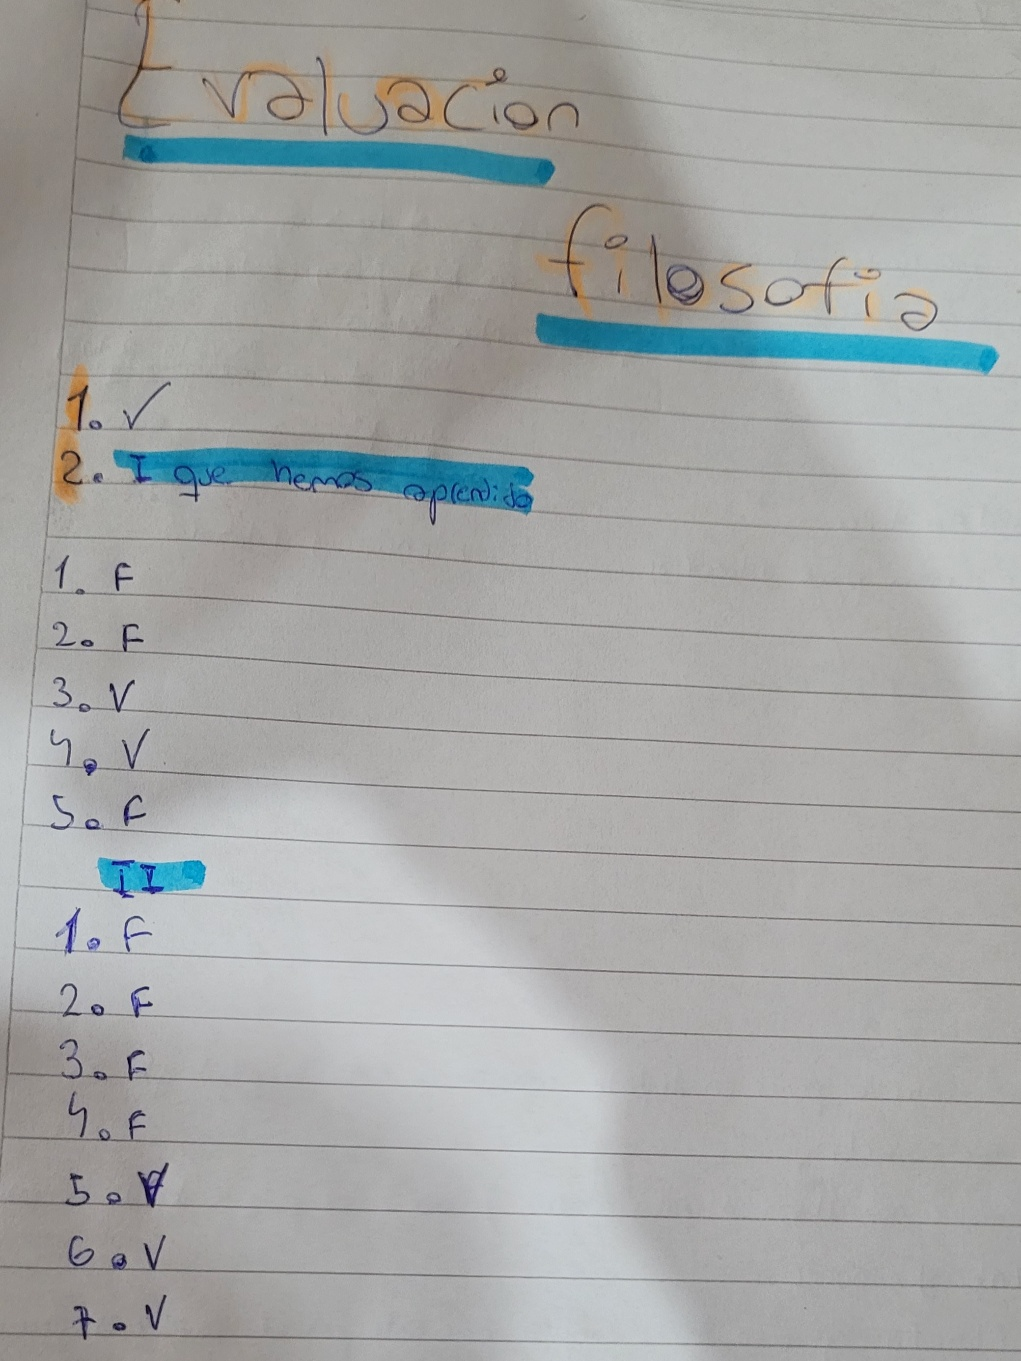 Evaluacion
filosofia
1. ✓
2. I que hemos aprendido
1. F
2. F
3. V
4. V
5. F
II
1. F
2. F
3. F
4. F
5. V
6. V
7. V